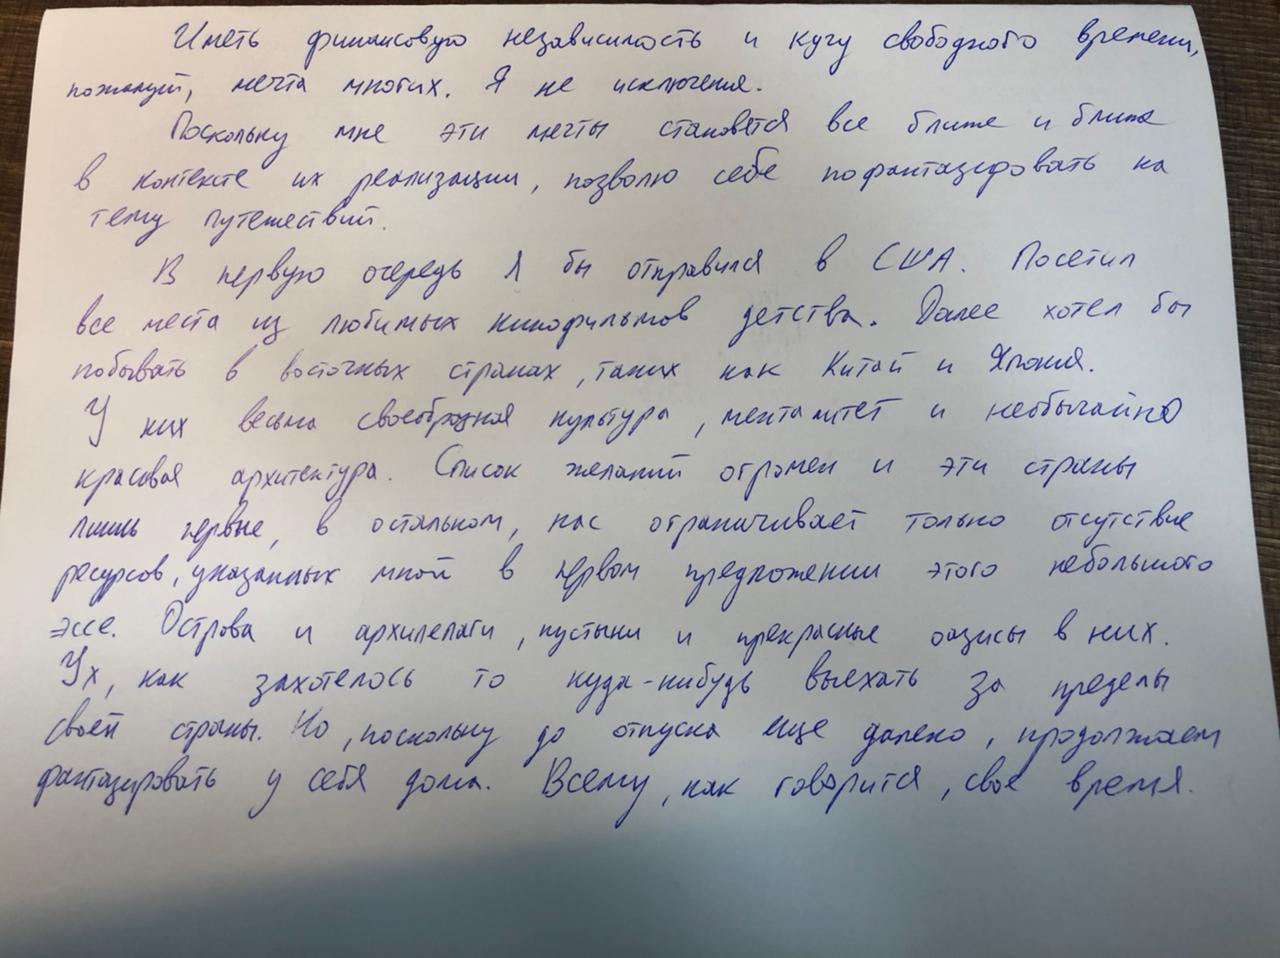 Иметь финансовую независимость и кучу свободного времени,
пожалуй, мечта многих. Я не исключение.
Поскольку мне эти мечты становятся все ближе и ближе
в контексте их реализации, позволю себе пофантазировать на
тему путешествий.
В первую очередь я бы отправился в США. Посетил
все места из любимых кинофильмов детства. Далее хотел бы
побывать в восточных странах, таких как Китай и Япония.
У них весьма своеобразная культура, менталитет и необычайно
красивая архитектура. Список желаний огромен и эти страны
лишь первые, в остальном, нас ограничивает только отсутствие
ресурсов, указанных мной в первом предложении этого небольшого
эссе. Острова и архипелаги, пустыни и прекрасные оазисы в них.
Ух, как захотелось то куда-нибудь выехать за пределы
своей страны. Но, поскольку до отпуска еще далеко, продолжаем
фантазировать у себя дома. Всему, как говорится, свое время.